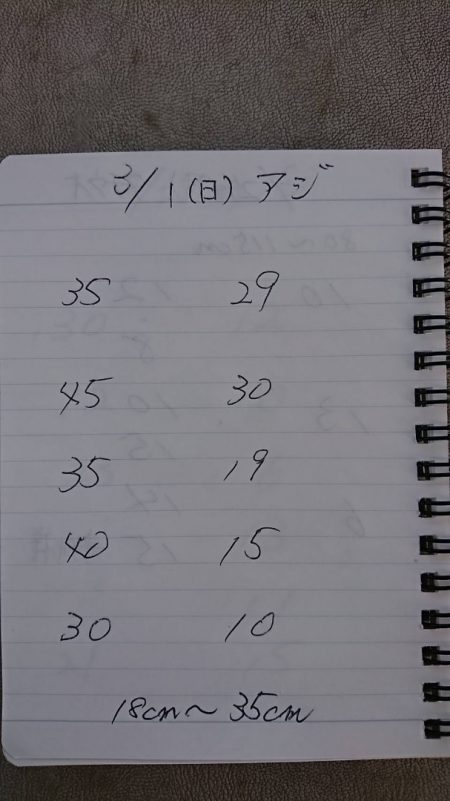 3/1(日) アジ
35 29
45 30
35 19
40 15
30 10
18cm~35cm